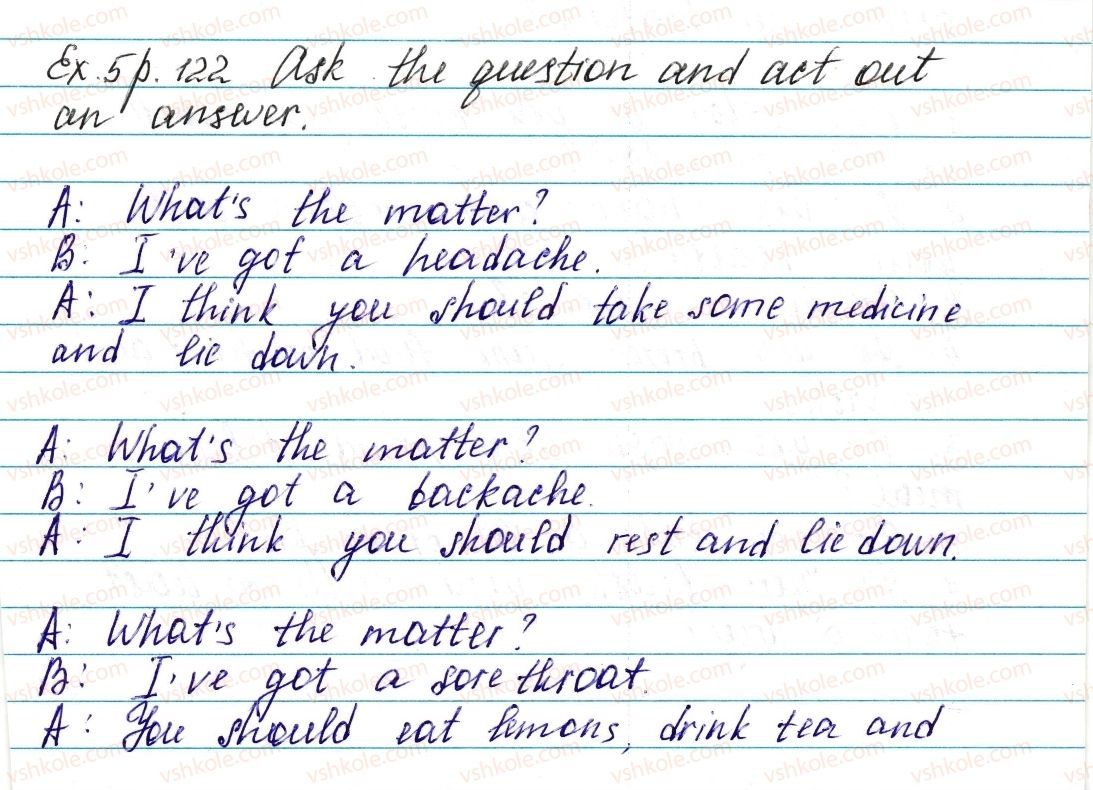 Ex. 5 p. 122 Ask the question and act out
an answer.
A: What's the matter?
B: I've got a headache.
A: I think you should take some medicine
and lie down.
A: What's the matter?
B: I've got a backache.
A: I think you should rest and lie down.
A: What's the matter?
B: I've got a sore throat.
A: You should eat lemons, drink tea and